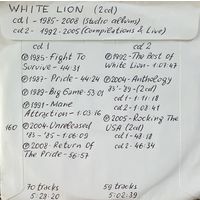 WHITE LION (2cd)
cd 1 - 1985-2008 (Studio albums)
cd 2 - 1992-2005 (Compilations & Live)
cd 1
Ⓟ1985-Fight To
Survive - 44:31
Ⓟ1987-Pride - 44:24
Ⓟ1989-Big Game-53:01
Ⓟ1991-Mane
Attraction - 1:03:16
160
Ⓟ2004-Unreleased
'83-'85 - 1:06:09
Ⓟ2008-Return Of
The Pride - 56:57
70 tracks
5:28:20
cd 2
Ⓟ1992-The Best of
White Lion - 1:07:47
Ⓟ2004-Anthology
83'-89'-(2cd)
cd1 - 1:11:18
cd2 - 1:08:41
Ⓟ2005-Rocking The
USA (2cd)
cd1 - 48:18
cd2 - 46:34
59 tracks
5:02:39